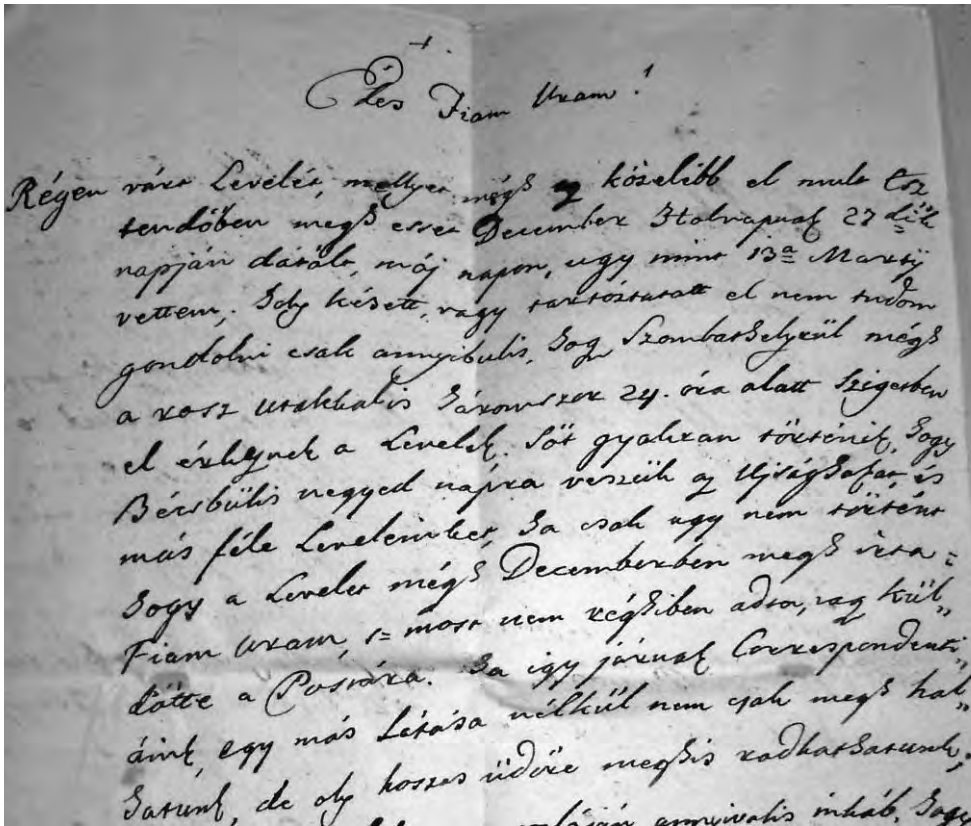 +.
Édes Fiam Uram!
Régen várt Levelét, mellyet mégh az közelébb el mult Esz
tendőben megh esset December Holnapnak 27dik
napján datált, máj napon, ugy mint 13a Martij
vettem, holy késett, vagy tartóztatatt el nem tudom
gondolni csak annyibulis, hogy Szombathelyrül mégh
a rosz utakkalis háromszor 24. óra alatt Szigetben
el érkeznek a Levelek. Sőt gyakran történik, hogy
Bécsbülis negyed napra veszük az Ujsághokat, és
más féle Leveleinket, ha csak ugy nem történt
hogy a Levelet mégh Decemberben megh irta=
Fiam Uram, s= most nem réghiben adta, vagy kül„
dötte a Postára. Ha igy járnak Correspondenti„
áink, egy más Látása nélkül nem csak megh hal„
hatunk, de oly hosszas üdőre meghis vadhathatunk,
annivalis inkáb, hogy